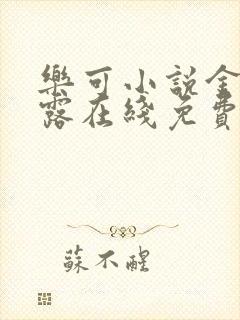 樂可小說金
露在綫免費
蘇不醒